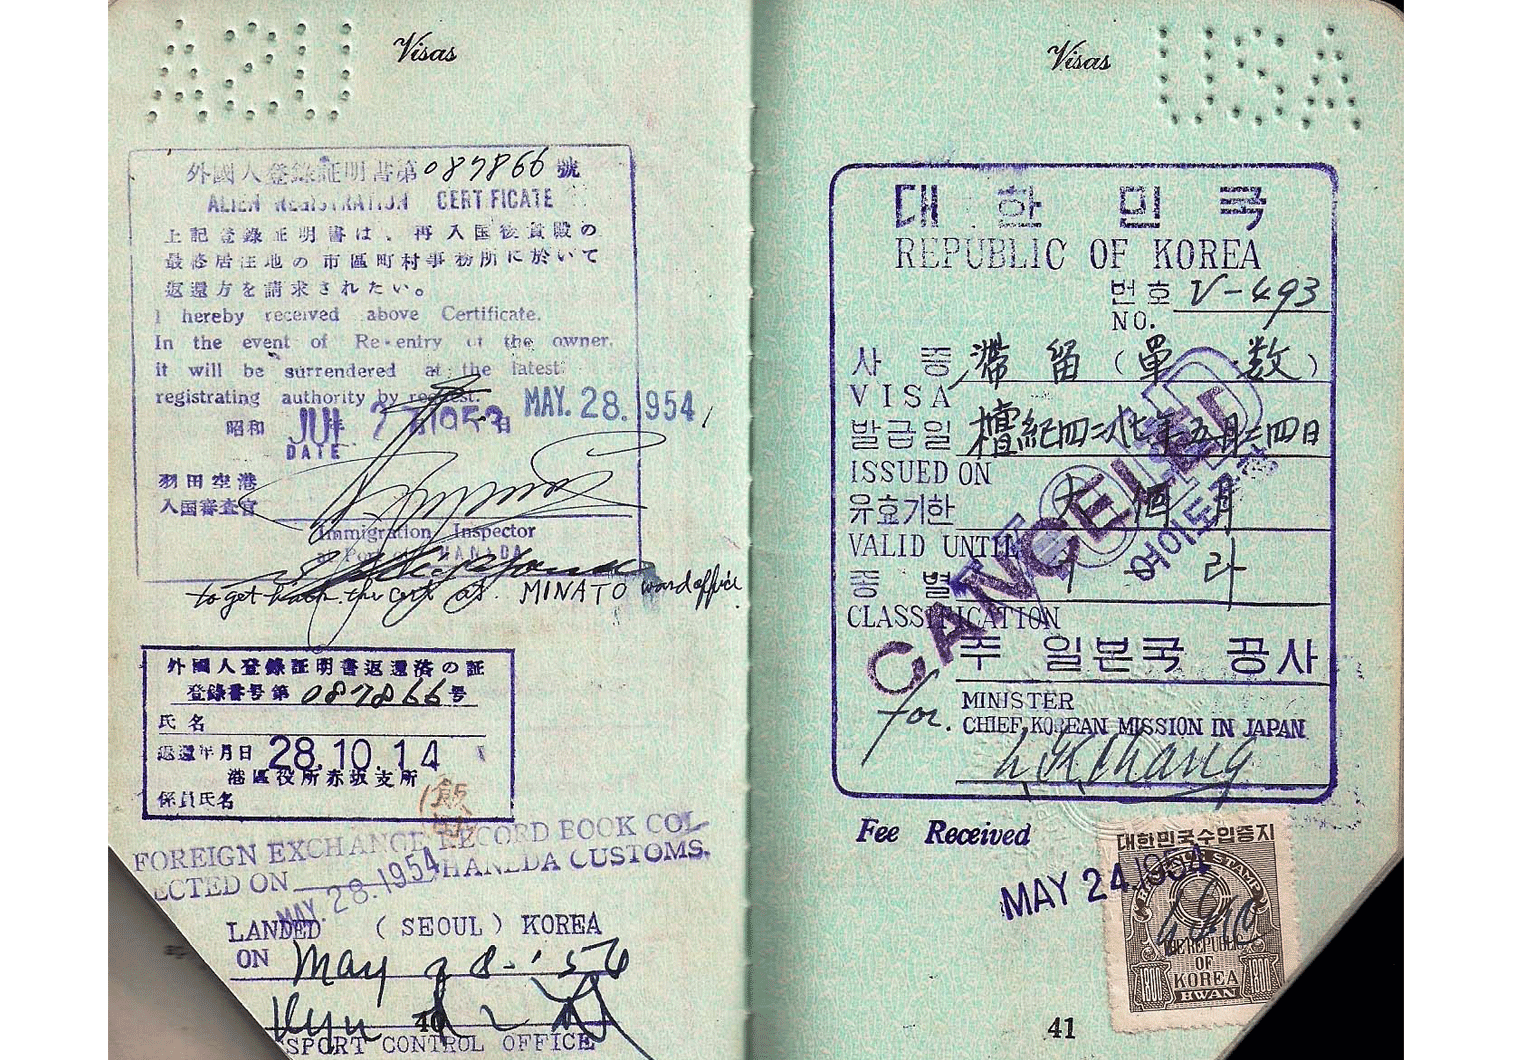 Visas
外國人登錄証明書第087866號
ALIEN REGISTRATION CERTIFICATE
上記登錄証明書は、再入国後貴殿の
最終居住地の市區町村事務所に於いて
返還方を請求されたい。
I hereby received above Certificate.
In the event of Re-entry of the owner,
it will be surrendered at the latest
registrating authority by request.
MAY. 28. 1954
昭和 年 月 日
DATE
羽田空港
入国審査官
Immigration Inspector
Port HANEDA
to get back the cert at MINATO ward office.
外國人登錄証明書返還済の証
登錄番号第087866号
氏名
返還年月日 28.10.14
港區役所赤坂支所
係員氏名
FOREIGN EXCHANGE RECORD BOOK COL
ECTED ON MAY. 28. 1954 HANEDA CUSTOMS.
LANDED (SEOUL) KOREA
ON May 28 - '54
40
SPORT CONTROL OFFICE
Visas
USA
대한민국
REPUBLIC OF KOREA
번호 V-493
NO.
사증 滯留(單数)
VISA
발급일 檀紀四二八七年五月二四日
ISSUED ON
유효기한 個月
VALID UNTIL
종별
CLASSIFICATION
CANCELLED
주일본국공사
for. MINISTER
CHIEF, KOREAN MISSION IN JAPAN
Fee Received
MAY 24. 1954
대한민국수입증지
REVENUE STAMP
THE REPUBLIC
OF
KOREA
1000 HWAN 1000
41